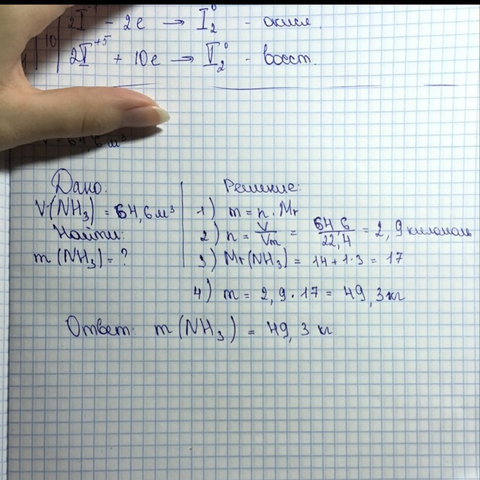 2I⁻¹ - 2e → I₂⁰ - окисл.
10
2I⁺⁵ + 10e → I₂⁰ - восст.
Дано:
V(NH₃) = 64,6 м³
Найти:
m(NH₃) = ?
Решение:
1) m = n · Mr
2) n = V/Vm = 64,6/22,4 = 2,9 киломоль
3) Mr(NH₃) = 14 + 1 · 3 = 17
4) m = 2,9 · 17 = 49,3 кг
Ответ: m(NH₃) = 49,3 кг